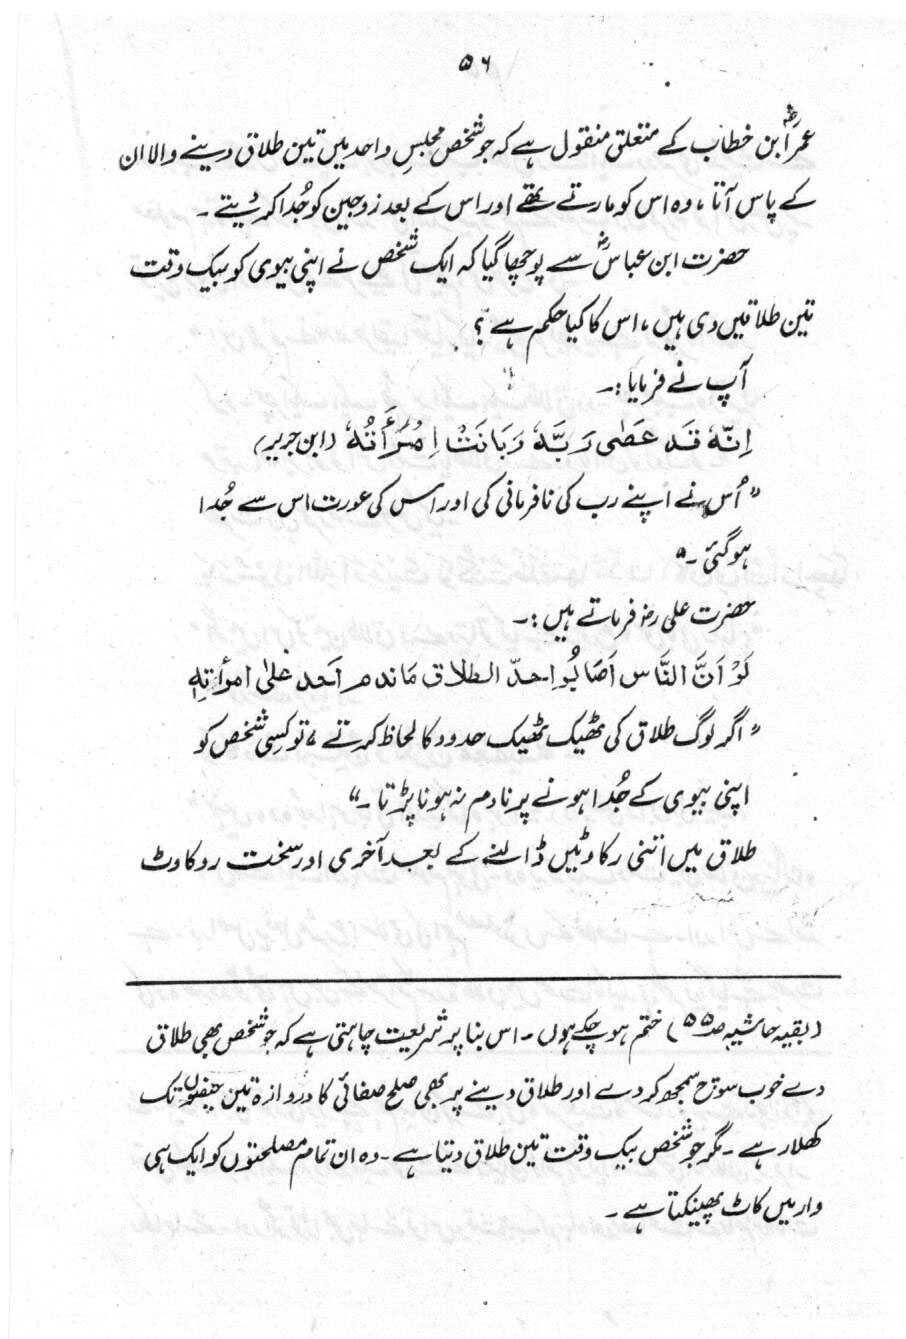 ۵۶
عمرؓ ابن خطاب کے متعلق منقول ہے کہ جو شخص مجلسِ واحد میں تین طلاق دینے والا ان
کے پاس آتا، وہ اس کو مارتے تھے اور اس کے بعد زوجین کو جُدا کر دیتے ۔
حضرت ابن عباسؓ سے پوچھا گیا کہ ایک شخص نے اپنی بیوی کو بیک وقت
تین طلاقیں دی ہیں، اس کا کیا حکم ہے ؟
آپ نے فرمایا :۔
اِنَّهٗ قَد عَصٰی رَبَّهٗ وَبَانَتْ اِمْرَأَتُهٗ (ابن جریر)
"اُس نے اپنے رب کی نافرمانی کی اور اس کی عورت اس سے جُدا
ہو گئی ۔"
حضرت علی رضؓ فرماتے ہیں :۔
لَوْ اَنَّ النَّاس اَصَابُوا حدّ الطلاق مَا ندم اَحَد عَلیٰ امرأتِهٖ
"اگر لوگ طلاق کی ٹھیک ٹھیک حدود کا لحاظ کرتے ، تو کسی شخص کو
اپنی بیوی کے جُدا ہونے پر نادم نہ ہونا پڑتا ۔"
طلاق میں اتنی رکاوٹیں ڈالنے کے بعد آخری اور سخت رد کاوٹ
(بقیہ حاشیہ صہ ۵۵) ختم ہو چکے ہوں ۔ اس بنا پر شریعت چاہتی ہے کہ جو شخص بھی طلاق
دے خوب سوچ سمجھ کر دے اور طلاق دینے پر بھی صلح صفائی کا دروازہ تین حیضوں تک
کھلا رہے ۔ مگر جو شخص بیک وقت تین طلاق دیتا ہے ۔ وہ ان تمام مصلحتوں کو ایک ہی
وار میں کاٹ پھینکتا ہے ۔